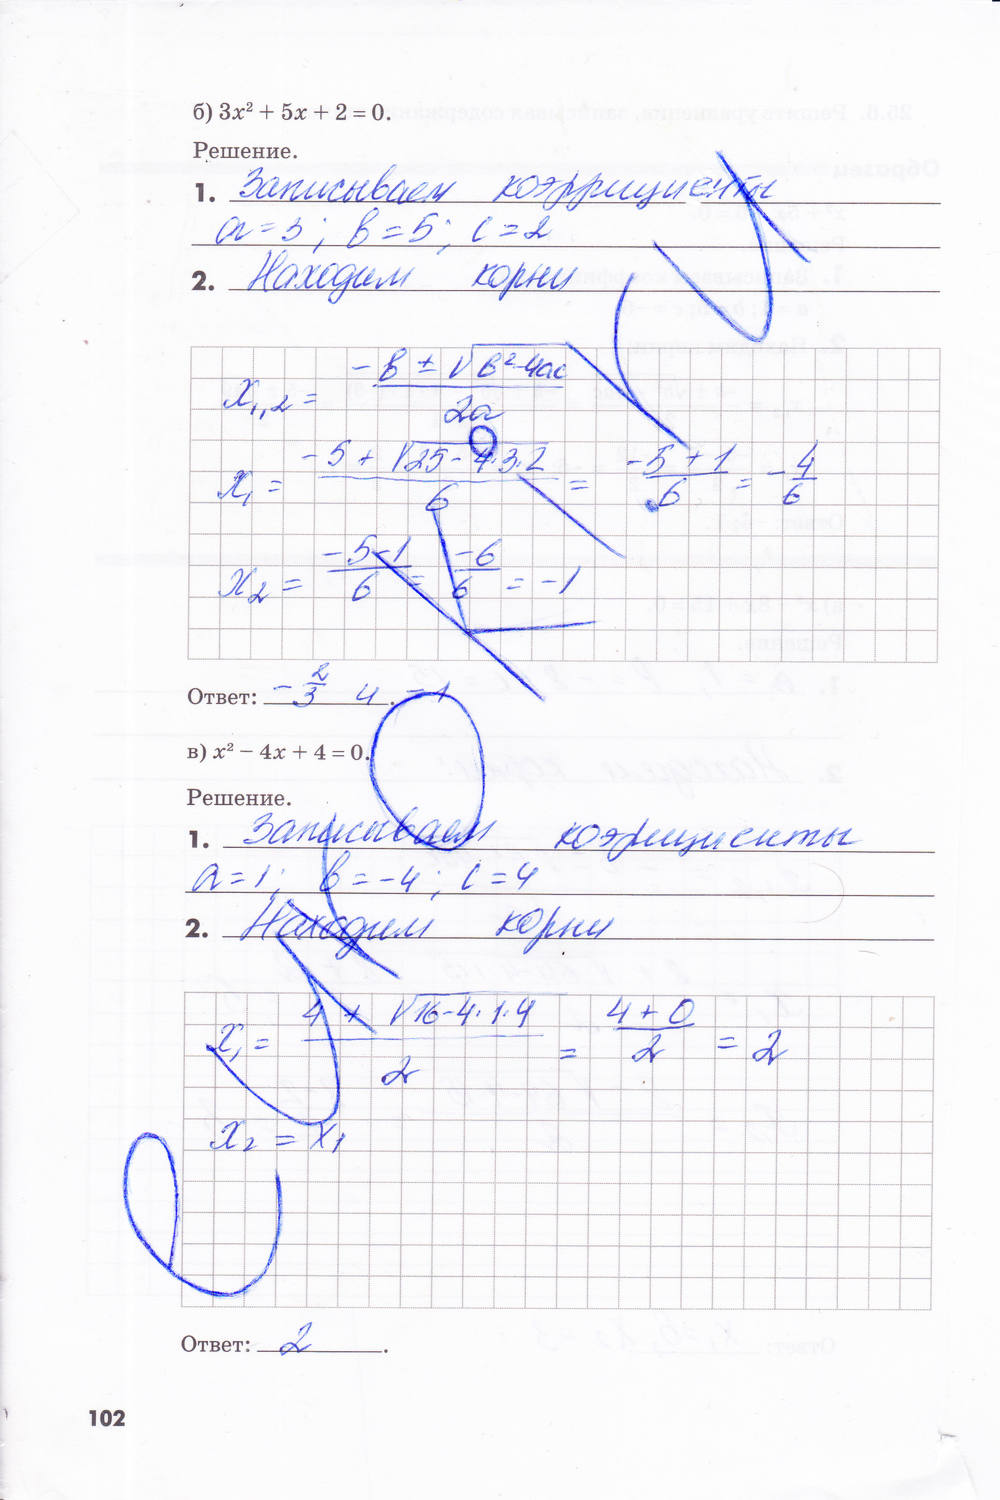 б) 3x² + 5x + 2 = 0.
Решение.
1. Записываем коэффициенты
a = 3; b = 5; c = 2
2. Находим корни
x₁,₂ = (-b ± √(b² - 4ac)) / 2a
x₁ = (-5 + √(25 - 4·3·2)) / 6 = (-5 + 1) / 6 = -4/6
x₂ = (-5 - 1) / 6 = -6/6 = -1
Ответ: -2/3 и -1.
в) x² − 4x + 4 = 0.
Решение.
1. Записываем коэффициенты
a = 1; b = -4; c = 4
2. Находим корни
x₁ = (4 + √(16 - 4·1·4)) / 2 = (4 + 0) / 2 = 2
x₂ = x₁
Ответ: 2.
102